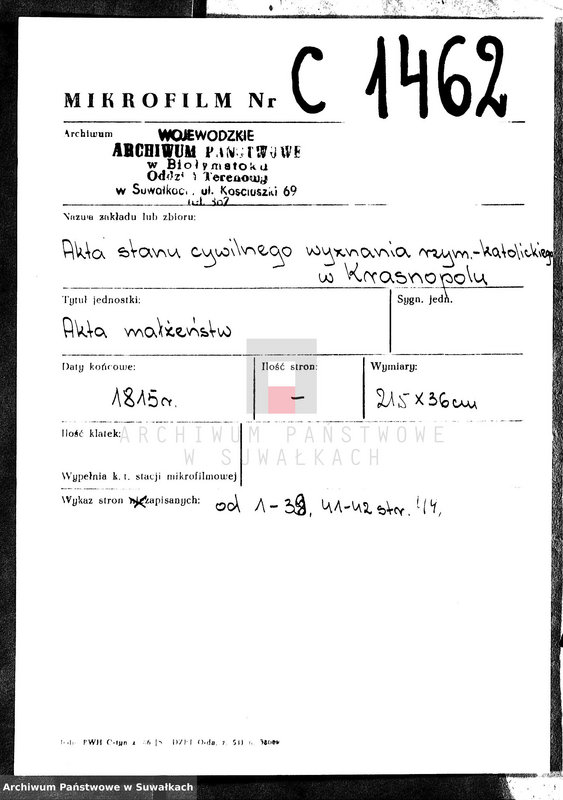 MIKROFILM Nr C 1462
Archiwum
WOJEWODZKIE
ARCHIWUM PAŃSTWOWE
w Białymstoku
Oddział Terenowy
w Suwałkach, ul. Kościuszki 69
tel. 307
Nazwa zakładu lub zbioru:
Akta stanu cywilnego wyznania rzym.-katolickiego
w Krasnopolu
Tytuł jednostki:
Sygn. jedn.
Akta małżeństw
Daty końcowe:
Ilość stron:
Wymiary:
1815r.
–
215 x 36cm
Ilość klatek:
ARCHIWUM PAŃSTWOWE
W SUWAŁKACH
Wypełnia k. t. stacji mikrofilmowej
Wykaz stron zapisanych: od 1-39, 41-42 str. 44,
PWH
Archiwum Państwowe w Suwałkach